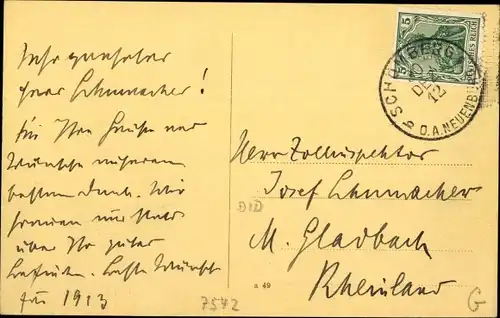 Sehr geehrter
Herr Schumacher!
Für Ihre Grüße und
Wünsche unseren
besten Dank. Wir
freuen uns stets
über Ihr gutes
Befinden. Beste Wünsche
für 1913
5
DEUTSCHES REICH
SCHÖMBERG
DEZ
12
b O.A. NEUENBÜRG
Herrn Zollinspektor
Josef Schumacher
M. Gladbach
Rheinland
BID
a 49
7572
G